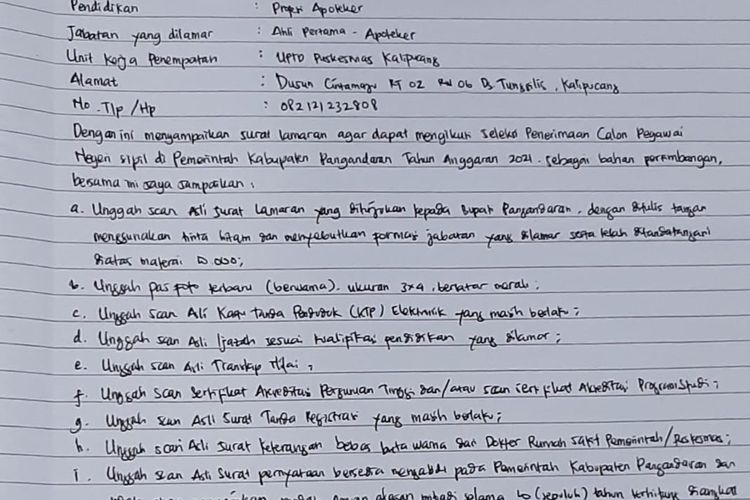 Pendidikan : Profesi Apoteker
Jabatan yang dilamar : Ahli Pertama - Apoteker
Unit Kerja Penempatan : UPTD Puskesmas Kalipucang
Alamat : Dusun Cintamaju RT 02 RW 06 Ds Tunggilis, Kalipucang
No. Tlp /Hp : 082121232808
Dengan ini menyampaikan surat lamaran agar dapat mengikuti seleksi Penerimaan Calon Pegawai
Negeri sipil di Pemerintah Kabupaten Pangandaran Tahun Anggaran 2021. sebagai bahan pertimbangan,
bersama ini saya sampaikan :
a. Unggah scan Asli surat Lamaran yang ditujukan kepada Bupati Pangandaran, dengan ditulis tangan
menggunakan tinta hitam dan menyebutkan formasi jabatan yang dilamar serta telah ditandatangani
diatas materai 10.000;
b. Unggah pas foto terbaru (berwarna). ukuran 3x4, berlatar merah;
c. Unggah scan Asli Kartu Tanda Penduduk (KTP) Elektronik yang masih berlaku;
d. Unggah scan Asli Ijazah sesuai kualifikasi pendidikan yang dilamar;
e. Unggah scan Asli Transkip Nilai;
f. Unggah scan sertifikat Akreditasi Perguruan Tinggi dan/atau scan sertifikat Akreditasi Program Studi;
g. Unggah scan Asli Surat Tanda Registrasi yang masih berlaku;
h. Unggah scan Asli surat keterangan bebas buta warna dari Dokter Rumah sakit Pemerintah/Puskesmas;
i. Unggah scan Asli Surat pernyataan bersedia mengabdi pada Pemerintah Kabupaten Pangandaran dan
mulai dengan alasan pribadi selama 10 (sepuluh) tahun terhitung